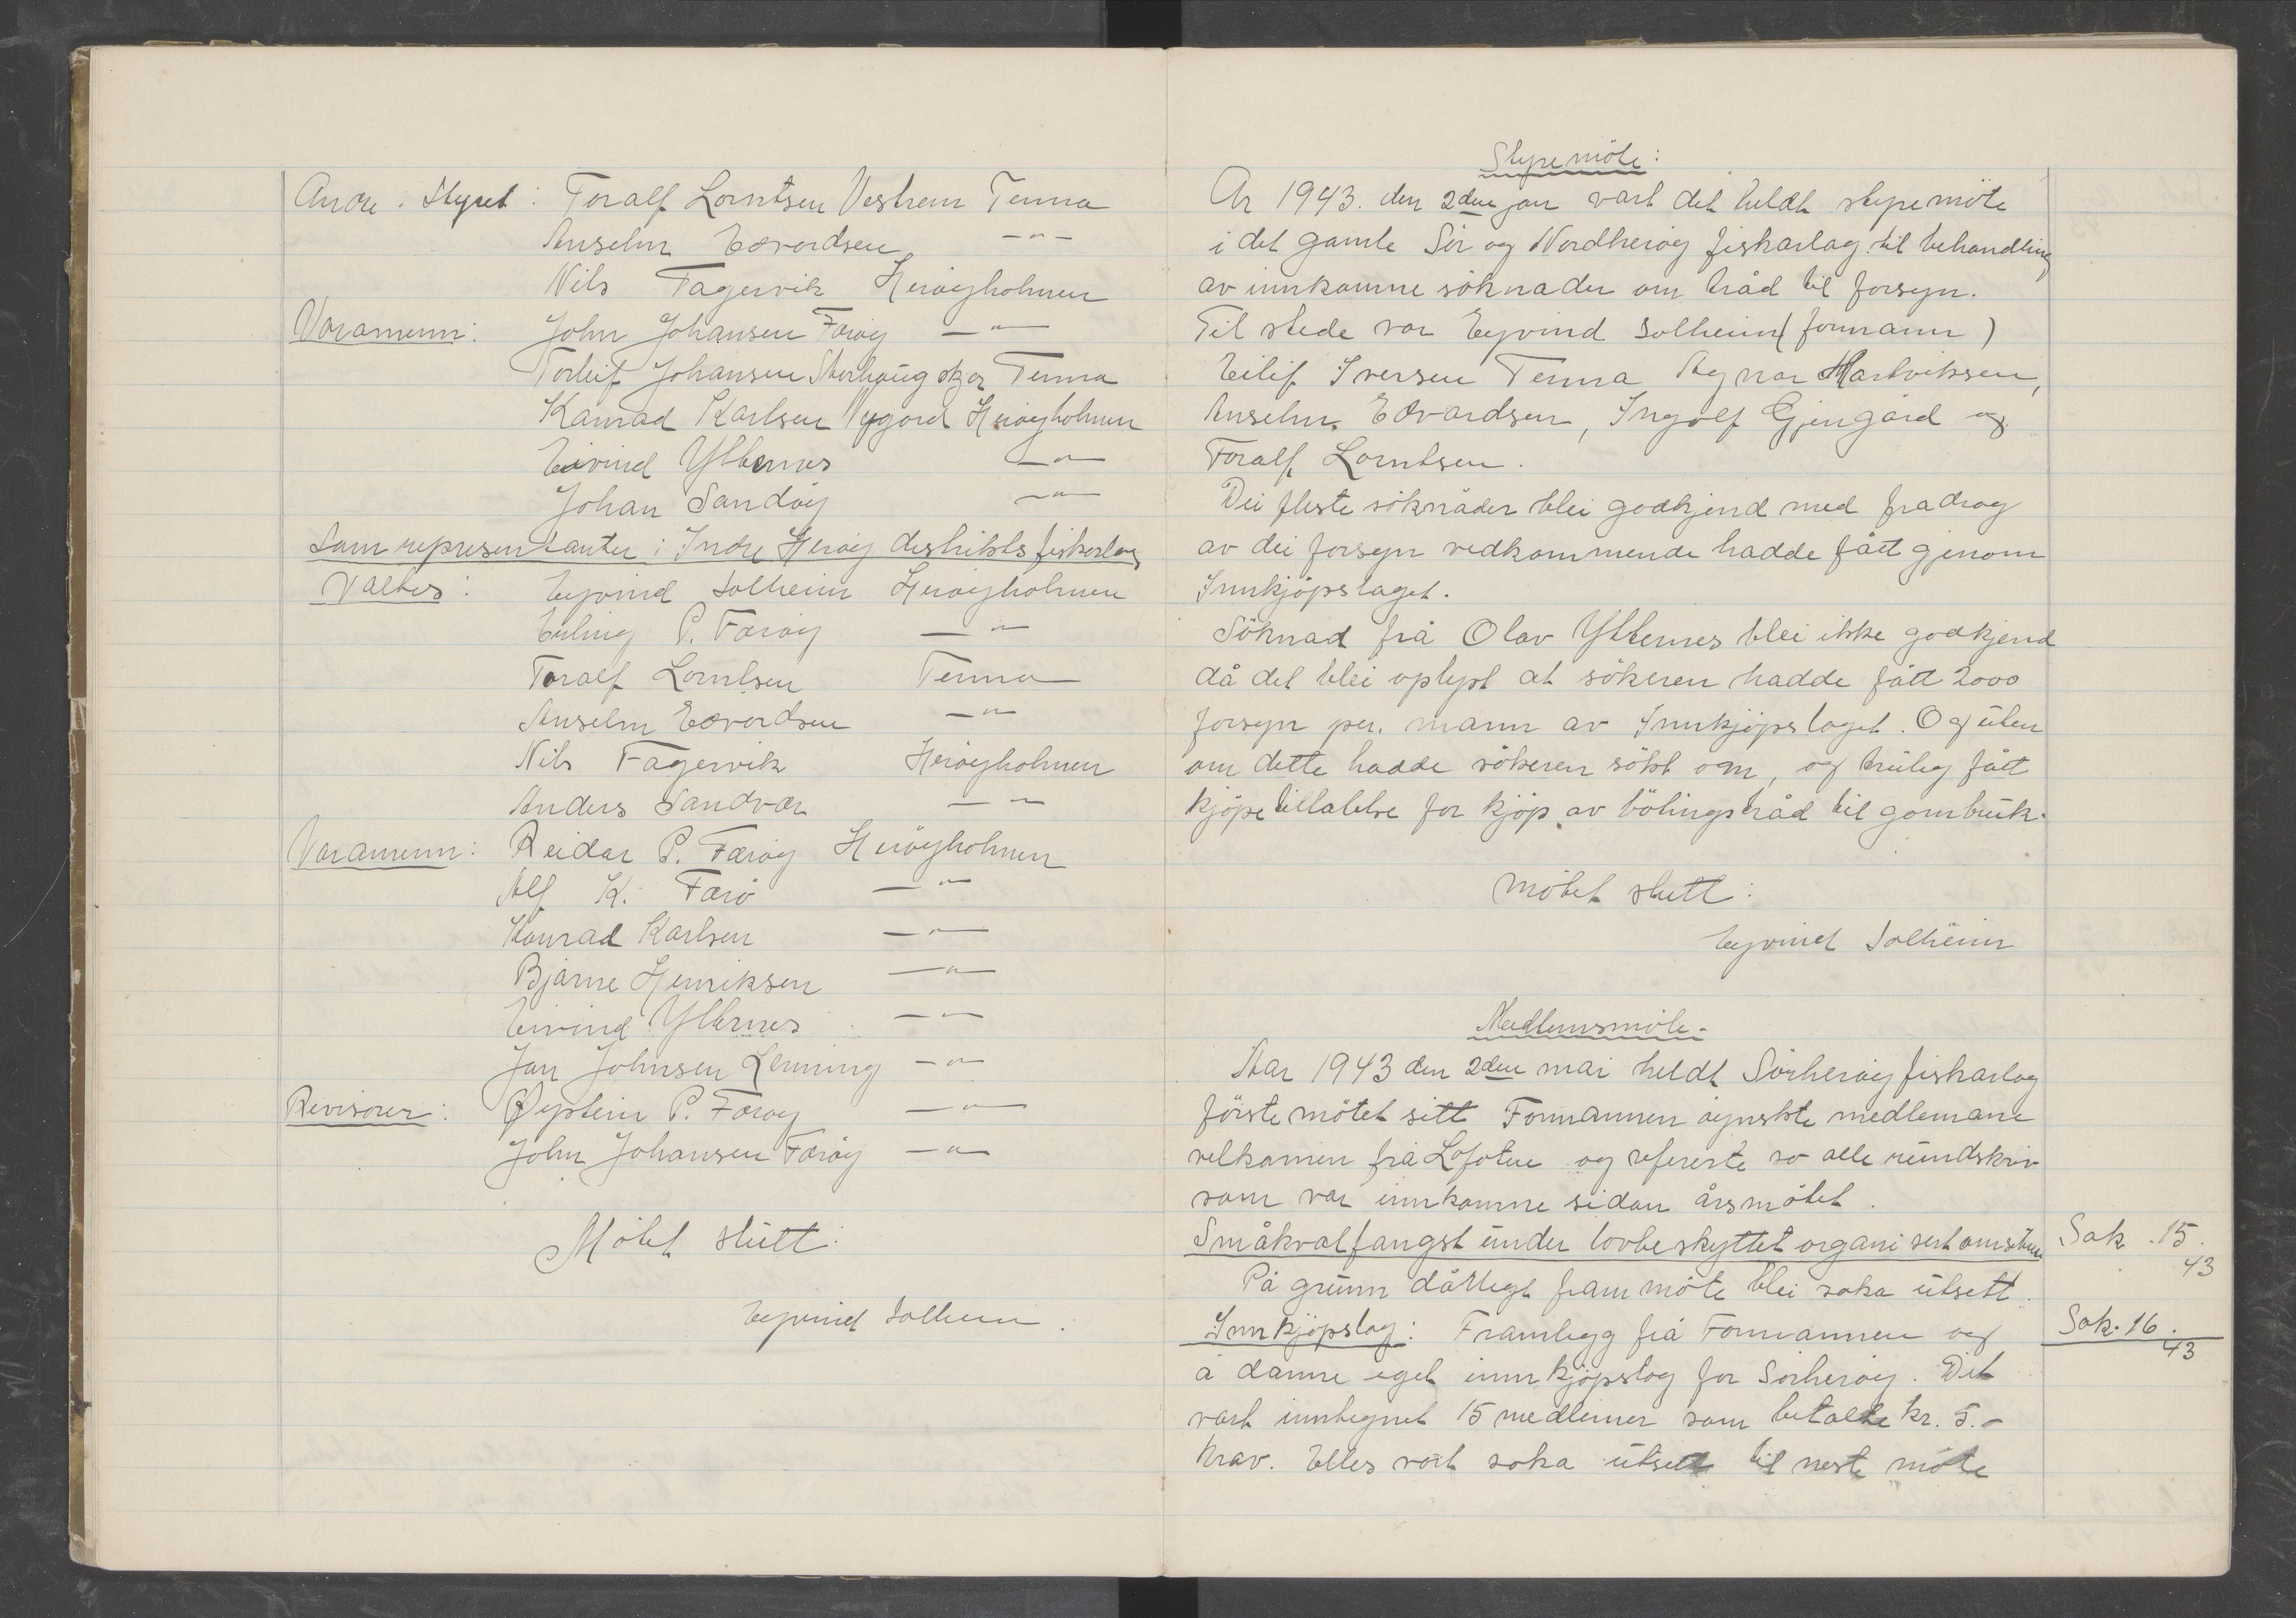 Andre i styret: Toralf Lorntsen Veshem Tenna
Anselm Edvardsen —"—
Nils Fagervik Heröyholmen
Varamenn: John Johansen Færöy —"—
Torleif Johansen Tenna
Konrad Karlsen Nygård Heröyholmen
Eivind Ytternes —"—
Johan Sandöy —"—
Som representanter i Indre Heröy destrikts fiskarlag
Valtes: Eyvind Solheim Heröyholmen
Erling P. Færöy —"—
Toralf Lorntsen Tenna
Anselm Edvardsen —"—
Nils Fagervik Heröyholmen
Anders Sandvær —"—
Varamenn: Reidar P. Færöy Heröyholmen
Alf K. Færö —"—
Konrad Karlsen —"—
Bjarne Henriksen —"—
Eivind Ytternes —"—
Jan Johnsen Lenning —"—
Revisorer: Øystein P. Færöy —"—
John Johansen Færöy —"—
Mötet slutt:
Eyvind Solheim.
Styremöte:
År 1943. den 2den jan vart det heldt styremöte
i det gamle Sör og Nordheröy fiskarlag til behandling
av innkomne söknader om tråd til forsyn.
Til stede var Eyvind Solheim (formann)
Eilif Iversen Tenna Ragnar Hartviksen,
Anselm Edvardsen, Ingolf Gjengård og
Toralf Lorntsen.
Dei fleste söknader blei godkjend med fradrag
av dei forsyn vedkommende hadde fått gjenom
Innkjöpslaget.
Söknad frå Olav Ytternes blei ikke godkjend
då det blei oplyst at sökeren hadde fått 2000
forsyn per. mann av Innkjöpslaget. Og uten
om dette hadde sökeren sökt om, og trulig fått
kjöpetillatelse for kjöp av bötingstråd til garnbruk.
Mötet slutt:
Eyvind Solheim
Medlemsmöte.
Aar 1943 den 2den mai heldt Sörheröy fiskarlag
förste mötet sitt Formannen öynskte medlemane
velkomen frå Lofoten og refererte so alle rundskriv
som var innkomne sidan årsmötet.
Småkvalfangst under lovbeskyttet organisert omsetn Sak. 15. 43
På grunn dårlegt frammöte blei saka utsett.
Innkjöpslag: Framlegg frå Formannen og Sak. 16. 43
å danne eget innkjöpslag for Sörheröy. Det
vart inntegnet 15 medlemer som betalte kr. 5.-
krav. Elles vart saka utsett til neste möte